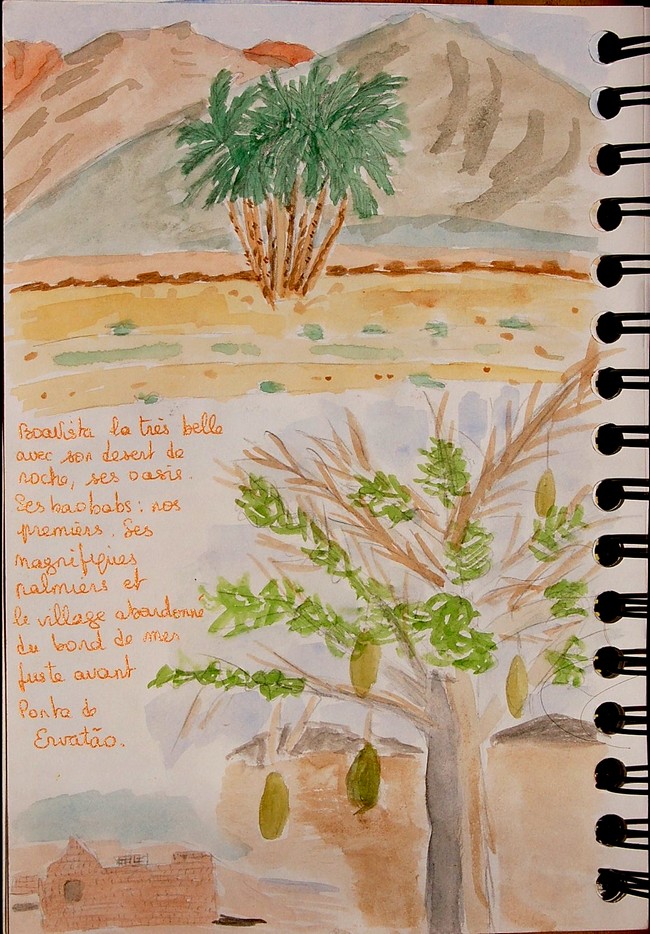 Boavista la très belle
avec son desert de
roche, ses oasis.
Ses baobabs : nos
premiers. Ses
magnifiques
palmiers et
le village abandonné
du bord de mer
juste avant
Ponta do
Ervatão.